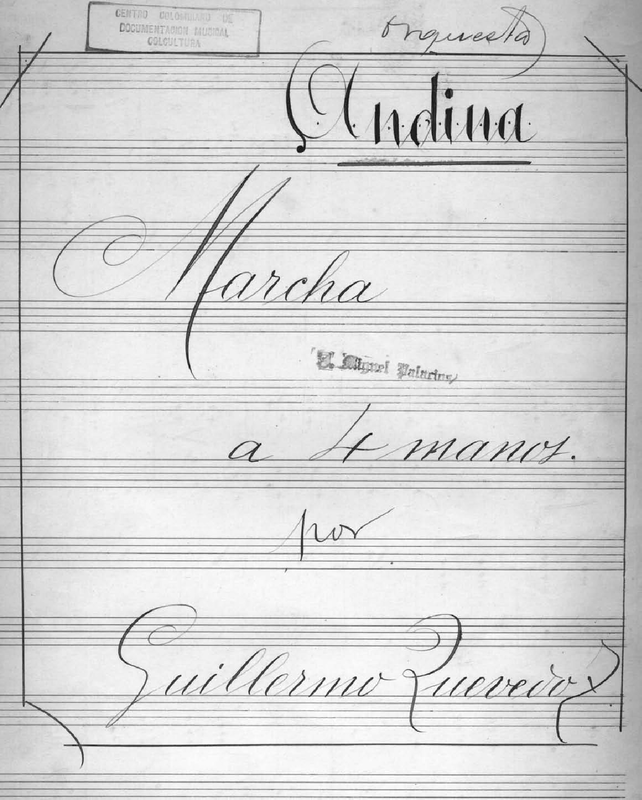 CENTRO COLOMBIANO DE
DOCUMENTACION MUSICAL
COLCULTURA
orquesta
Andina
Marcha
Miguel Palacios
a 4 manos.
por
Guillermo Quevedo Z